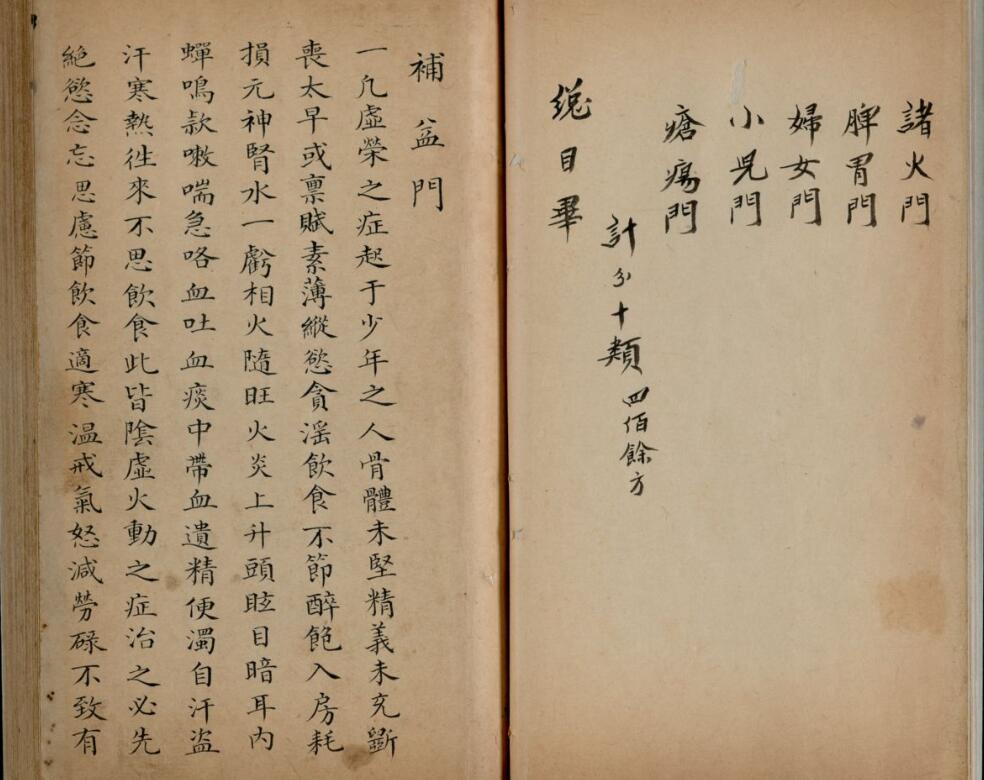 諸火門
脾胃門
婦女門
小児門
瘡瘍門
計分十類四佰餘方
總目畢
補益門
一凡虛榮之症起于少年之人骨體未堅精義未充斵
喪太早或禀賦素薄縱慾貪滛飲食不節醉飽入房耗
損元神腎水一虧相火隨旺火炎上升頭眩目暗耳内
蟬鳴欬嗽喘急咯血吐血痰中帶血遺精便濁自汗盜
汗寒熱徃來不思飲食此皆陰虛火動之症治之必先
絶慾念忘思慮節飲食適寒温戒氣怒減勞碌不致有